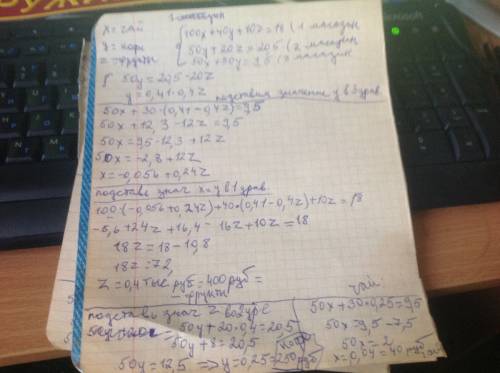 x = чай
y = кофе
z = фрукты
100x + 40y + 10z = 18 (1 магазин
50y + 20z = 20,5 (2 магазин
50x + 30y = 9,5 (3 магазин
50y = 20,5 - 20z
y = 0,41 - 0,4z
подставим значение y в 3 урав.
50x + 30·(0,41 - 0,4z) = 9,5
50x + 12,3 - 12z = 9,5
50x = 9,5 - 12,3 + 12z
50x = -2,8 + 12z
x = -0,056 + 0,24z
подставь знач x и y в 1 урав.
100·(-0,056 + 0,24z) + 40·(0,41 - 0,4z) + 10z = 18
-5,6 + 24z + 16,4 - 16z + 10z = 18
18z = 18 - 10,8
18z = 7,2
z = 0,4 тыс руб = 400 руб =
- фрукты
подставь знач z во 2 уре
50y + 20·0,4 = 20,5
50y + 8 = 20,5
50y = 12,5 => y = 0,25 = 250 руб
кофе
чай
50x + 30·0,25 = 9,5
50x = 9,5 - 7,5
50x = 2
x = 0,04 = 40 руб чай